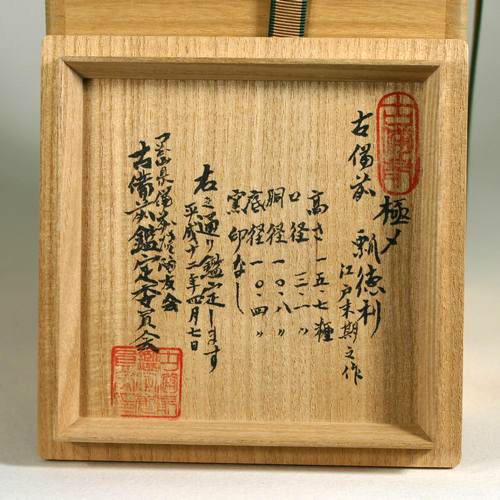 古備前
極〆
古備前 瓢徳利
江戸末期之作
高さ 一五・七糎
口径 三・一〃
胴径 一〇・八〃
底径 一〇・四〃
窯印なし
右之通り鑑定します
平成十二年四月七日
岡山県備前焼陶友会
古備前鑑定委員会